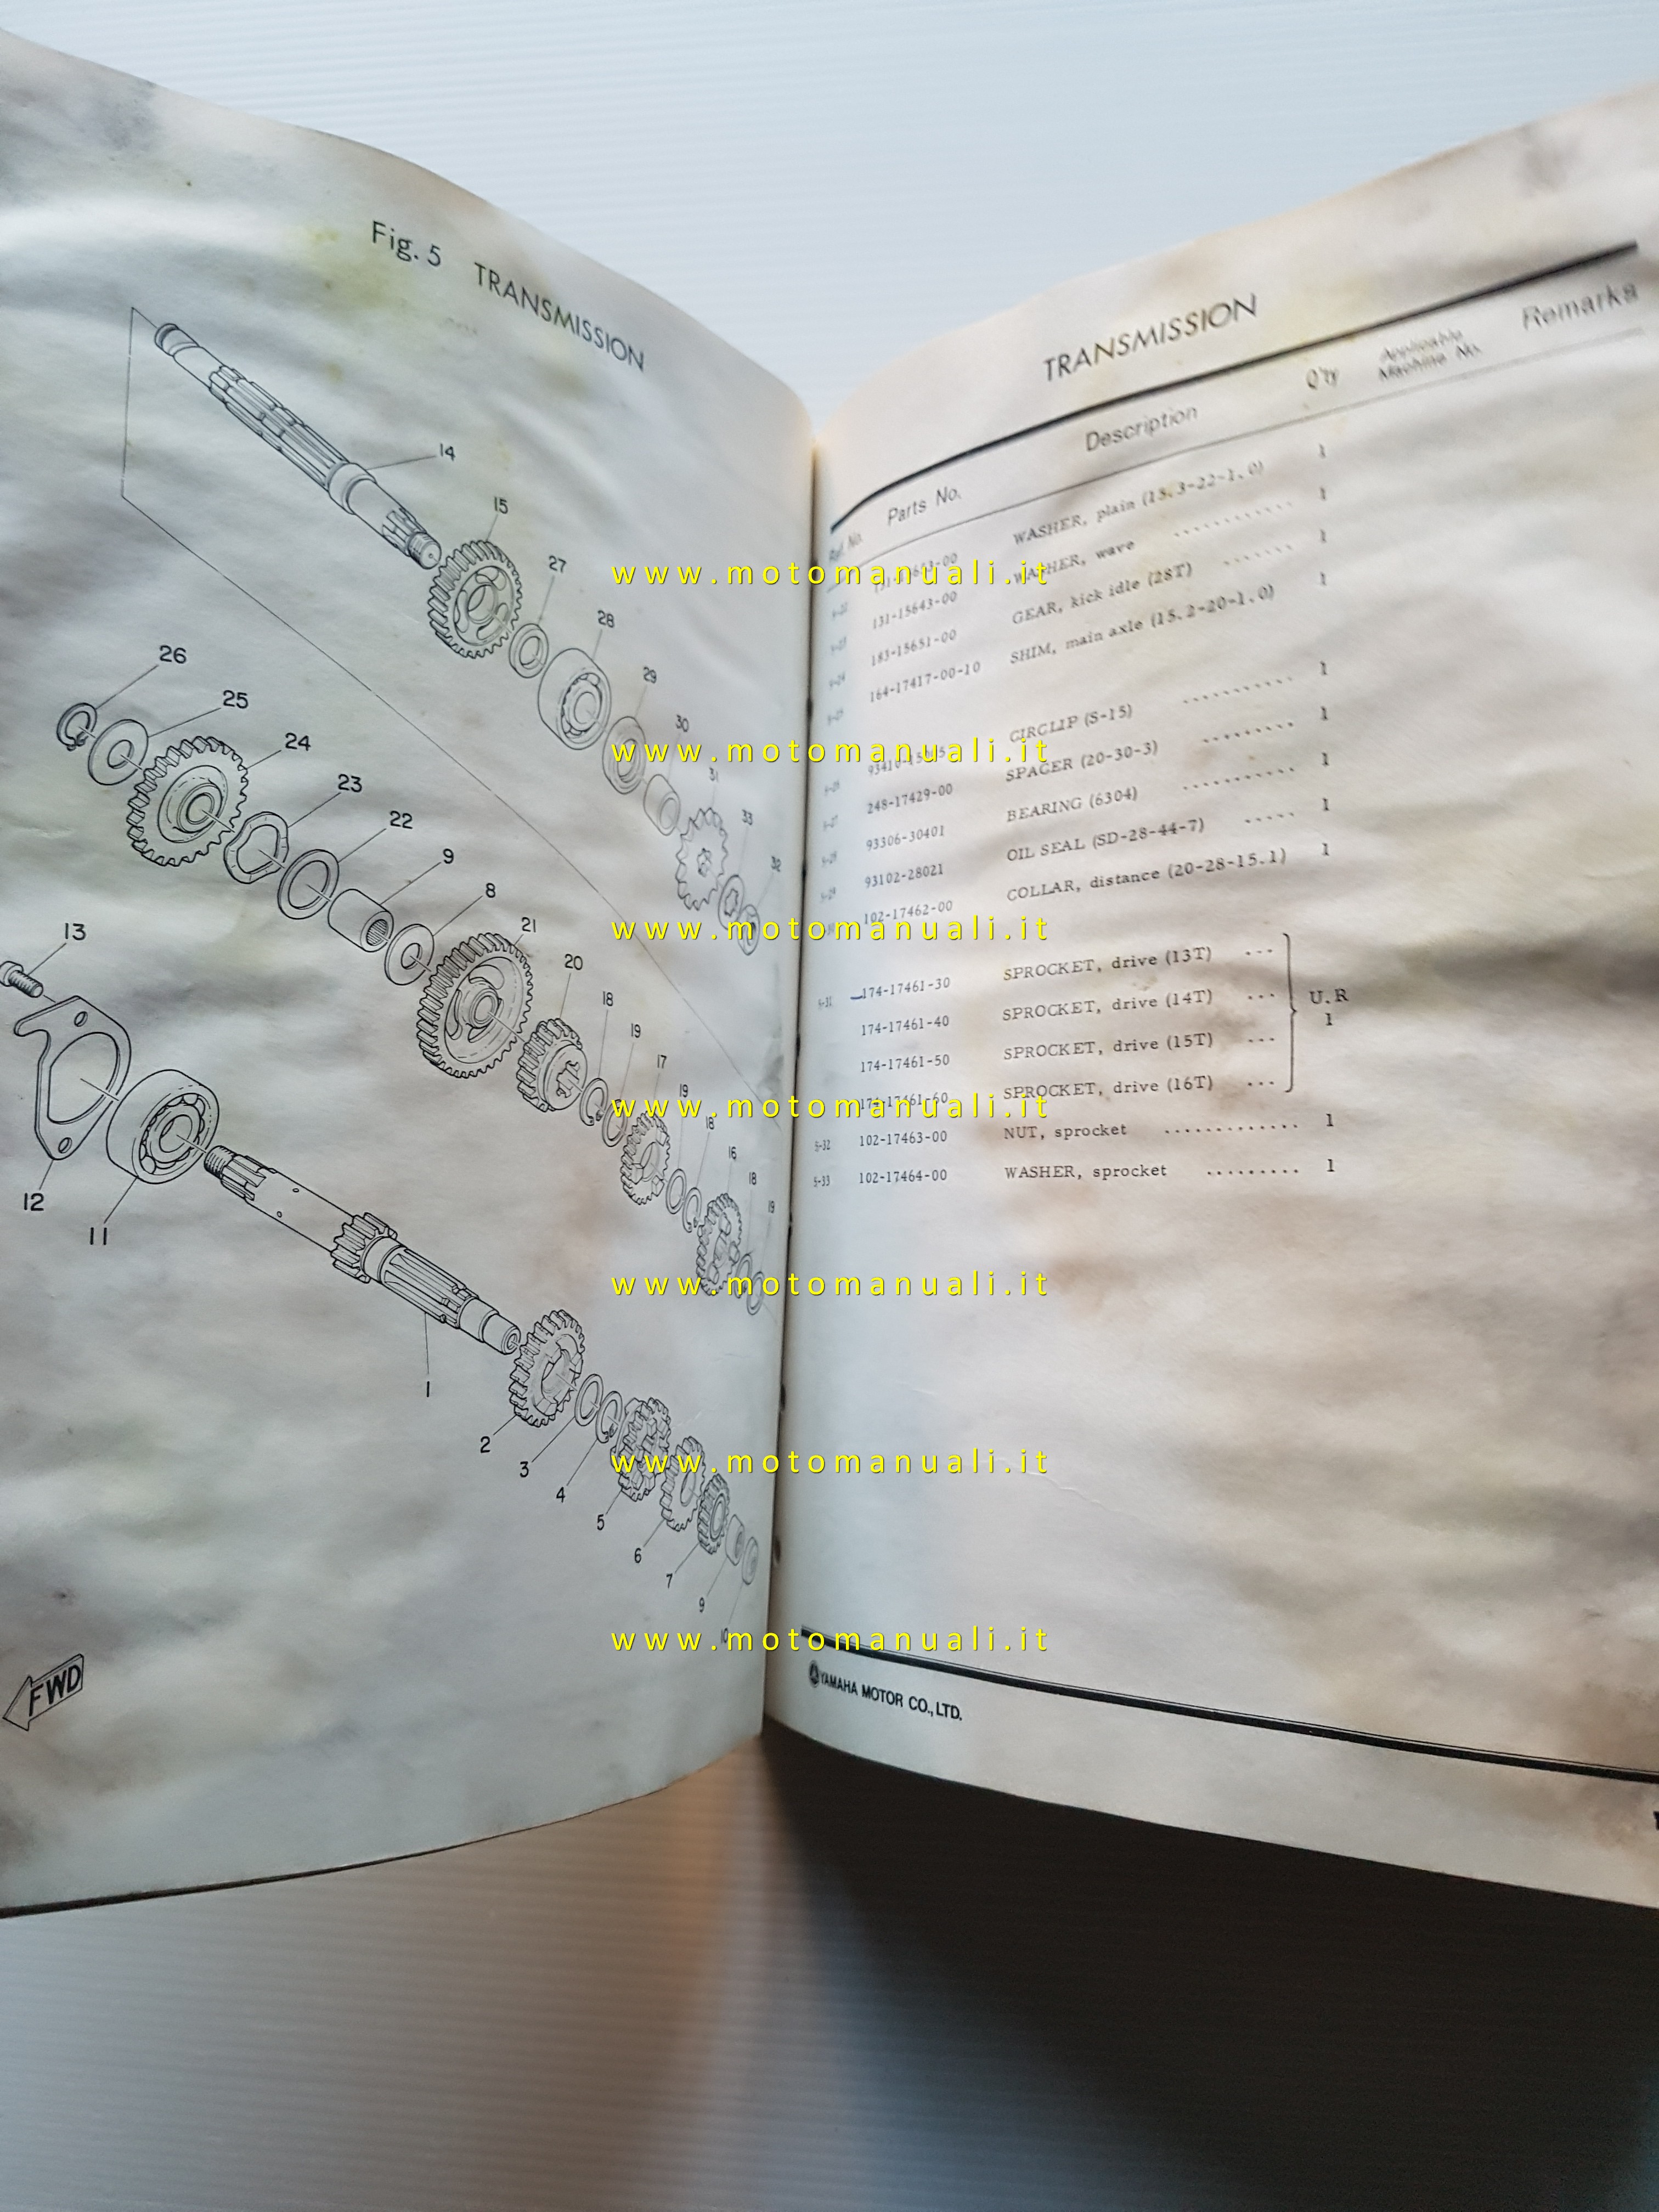 Fig. 5 TRANSMISSION
14
15
27
28
29
30
31
33
32
26
25
24
23
22
9
8
21
20
18
19
17
19
18
16
18
19
13
12
11
1
2
3
4
5
6
7
9
10
FWD
TRANSMISSION
Ref. No. Parts No. Description Q'ty Applicable Machine No. Remarks
5-22 WASHER, plain (15.3-22-1.0) 1
5-23 131-15643-00 WASHER, wave ............ 1
5-24 183-15651-00 GEAR, kick idle (28T) ....... 1
5-25 164-17417-00-10 SHIM, main axle (15.2-20-1.0) 1
5-26 CIRCLIP (S-15) ........... 1
5-27 248-17429-00 SPACER (20-30-3) ......... 1
5-28 93306-30401 BEARING (6304) ........... 1
5-29 93102-28021 OIL SEAL (SD-28-44-7) ..... 1
102-17462-00 COLLAR, distance (20-28-15.1) 1
5-31 174-17461-30 SPROCKET, drive (13T) ...
174-17461-40 SPROCKET, drive (14T) ... U.R
174-17461-50 SPROCKET, drive (15T) ... 1
174-17461-60 SPROCKET, drive (16T) ...
5-32 102-17463-00 NUT, sprocket ............. 1
5-33 102-17464-00 WASHER, sprocket ......... 1
YAMAHA MOTOR CO., LTD.
www.motomanuali.it
www.motomanuali.it
www.motomanuali.it
www.motomanuali.it
www.motomanuali.it
www.motomanuali.it
www.motomanuali.it